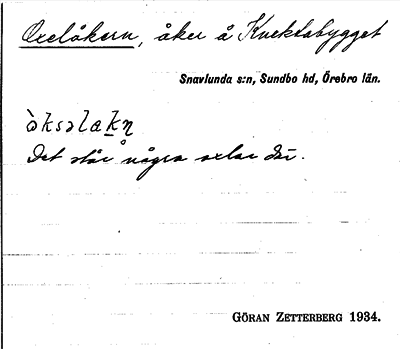 Oxelåkern, åker å Knektabygget
Snavlunda s:n, Sundbo hd, Örebro län.
Det står några oxlar där.
GÖRAN ZETTERBERG 1934.